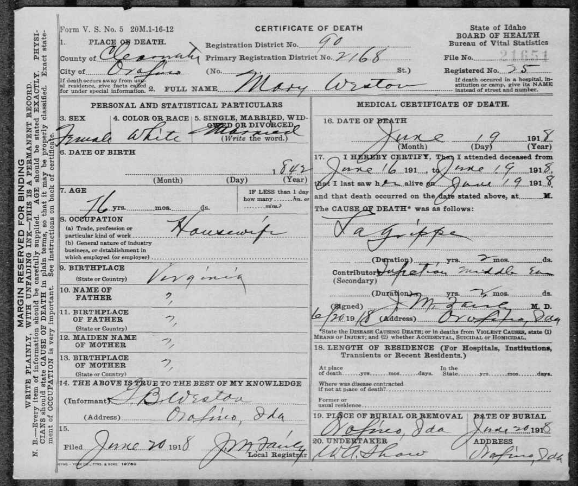 Form V. S. No. 5 20M.1-16-12
CERTIFICATE OF DEATH
State of Idaho
BOARD OF HEALTH
Bureau of Vital Statistics
1. PLACE OF DEATH.
County of Clearwater
Registration District No. 90
Primary Registration District No. 2168
File No. 21651
City of Orofino (No. St.)
Registered No. 25
If death occurs away from usual residence, give facts called for under special information.
2. FULL NAME Mary Weston
If death occurred in a hospital, institution or camp, give its NAME instead of street and number.
PERSONAL AND STATISTICAL PARTICULARS
3. SEX 4. COLOR OR RACE 5. SINGLE, MARRIED, WIDOWED OR DIVORCED
Female White Married
(Write the word.)
6. DATE OF BIRTH
1842
(Month) (Day) (Year)
7. AGE
76 yrs. mos. ds.
IF LESS than 1 day how many hrs. or min.?
8. OCCUPATION
(a) Trade, profession or particular kind of work Housewife
(b) General nature of industry business, or establishment in which employed (or employer)
9. BIRTHPLACE
(State or Country) Virginia
10. NAME OF FATHER ?,
11. BIRTHPLACE OF FATHER
(State or County) ?,
12. MAIDEN NAME OF MOTHER ?,
13. BIRTHPLACE OF MOTHER
(State or Country) ?,
14. THE ABOVE IS TRUE TO THE BEST OF MY KNOWLEDGE
(Informant) Weston
(Address) Orofino, Ida
15.
Filed June 20 1918
Local Registrar
MEDICAL CERTIFICATE OF DEATH.
16. DATE OF DEATH
June 19 1918
(Month) (Day) (Year)
17. I HEREBY CERTIFY, That I attended deceased from
June 16 191 to June 19 1918
that I last saw her alive on June 19 1918
and that death occurred on the date stated above, at M.
The CAUSE OF DEATH* was as follows:
Lagrippe
(Duration) yrs. 2 mos. ds.
Contributory Infection middle Ear
(Secondary)
(Duration) yrs. mos. ds.
(Signed) J M. M. D.
6/20 1918 (Address) Orofino, Ida
*State the DISEASE CAUSING DEATH; or in deaths from VIOLENT CAUSES, state (1) MEANS OF INJURY; and (2) whether ACCIDENTAL, SUICIDAL or HOMICIDAL.
18. LENGTH OF RESIDENCE (For Hospitals, Institutions, Transients or Recent Residents.)
At place of death yrs. mos. days. In the State yrs. mos. days.
Where was disease contracted if not at place of death?
Former or usual residence
19. PLACE OF BURIAL OR REMOVAL DATE OF BURIAL
Orofino, Ida June 20 1918
20. UNDERTAKER ADDRESS
Shaw Orofino, Ida
MARGIN RESERVED FOR BINDING
WRITE PLAINLY, WITH UNFADING INK—THIS IS A PERMANENT RECORD.
N. B.—Every item of information should be carefully supplied. AGE should be stated EXACTLY. PHYSICIANS should state CAUSE OF DEATH in plain terms, so that it may be properly classified. Exact statement of OCCUPATION is very important. See instructions on back of certificate.